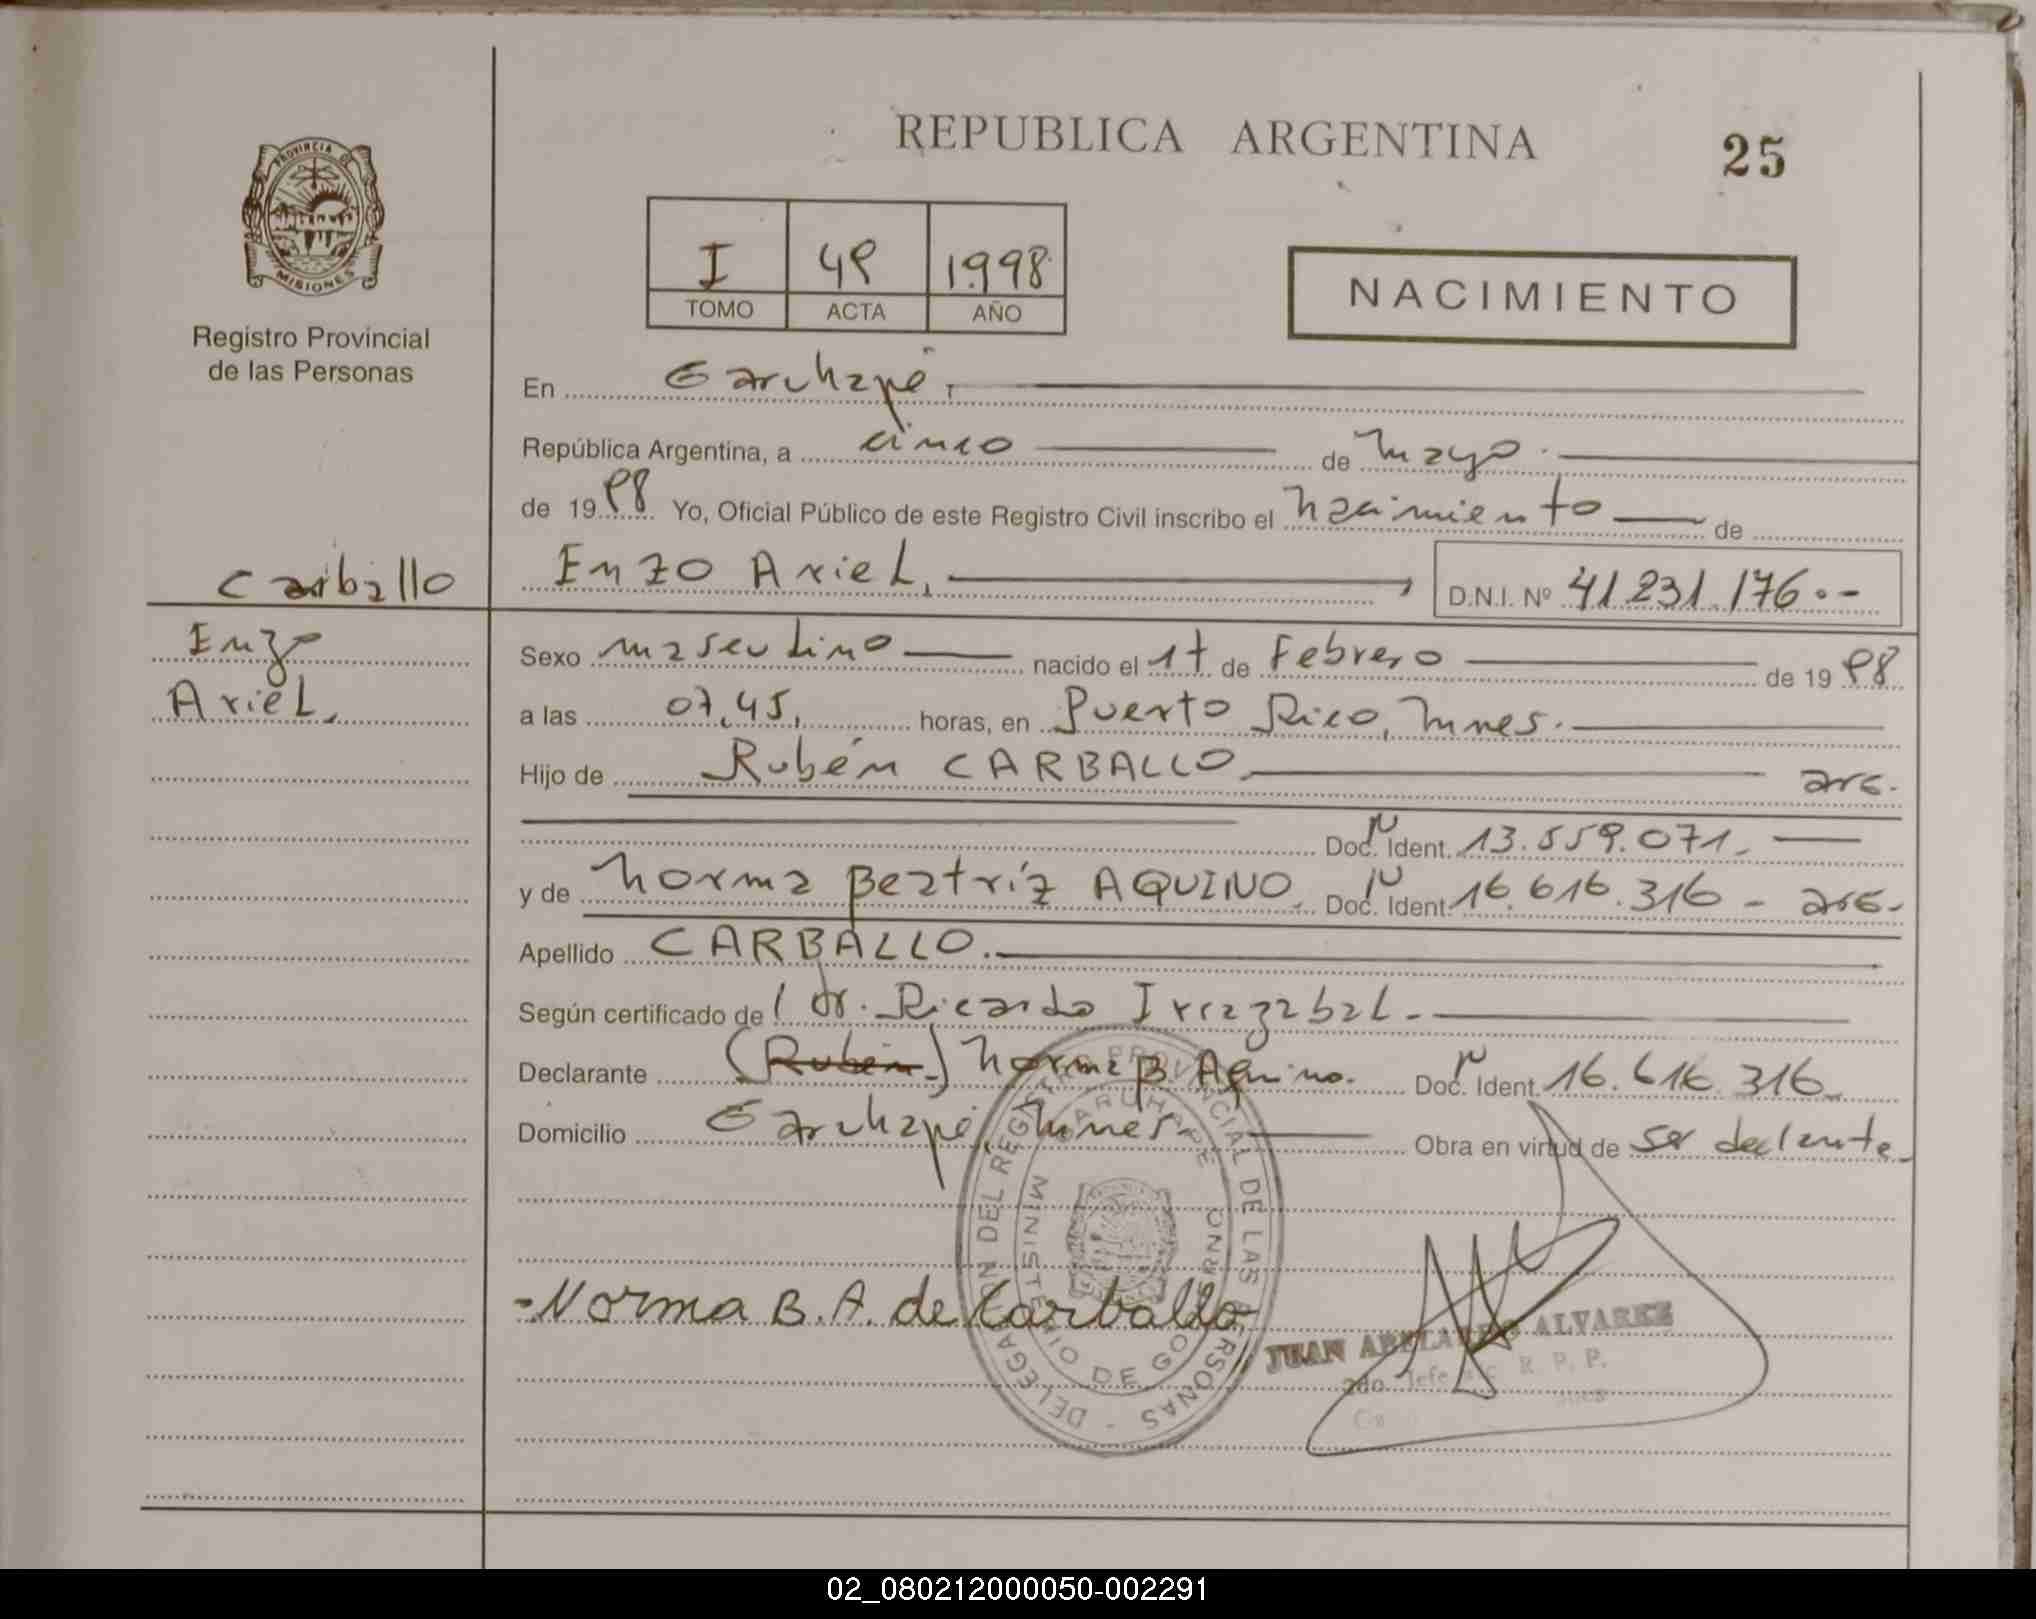 REPUBLICA ARGENTINA
25
PROVINCIA DE
MISIONES
Registro Provincial
de las Personas
I 49 1.998
TOMO ACTA AÑO
NACIMIENTO
En Garuhapé.
República Argentina, a cinco de mayo.
de 1998 Yo, Oficial Público de este Registro Civil inscribo el nacimiento de
Carballo
Enzo
Ariel.
Enzo Ariel, D.N.I. Nº 41.231.176.-
Sexo masculino nacido el 17 de Febrero de 1998
a las 07,45, horas, en Puerto Rico, Mnes.
Hijo de Rubén CARBALLO arg.
Doc. Ident. 13.559.071.
y de Norma Beatríz AQUINO. Doc. Ident. 16.616.316 - arg.
Apellido CARBALLO.
Según certificado de / dr. Ricardo Irrazabal.
Declarante (Rubén) Norma B. Aquino. Doc. Ident. 16.616.316
Domicilio Garuhapé, Mnes. Obra en virtud de ser declante
DELEGACION DEL REGISTRO PROVINCIAL DE LAS PERSONAS -
GARUHAPE
MINISTERIO DE GOBIERNO
-Norma B. A. de Carballo
JUAN ABELARDO ALVAREZ
2do. Jefe R. P. P.
02_080212000050-002291